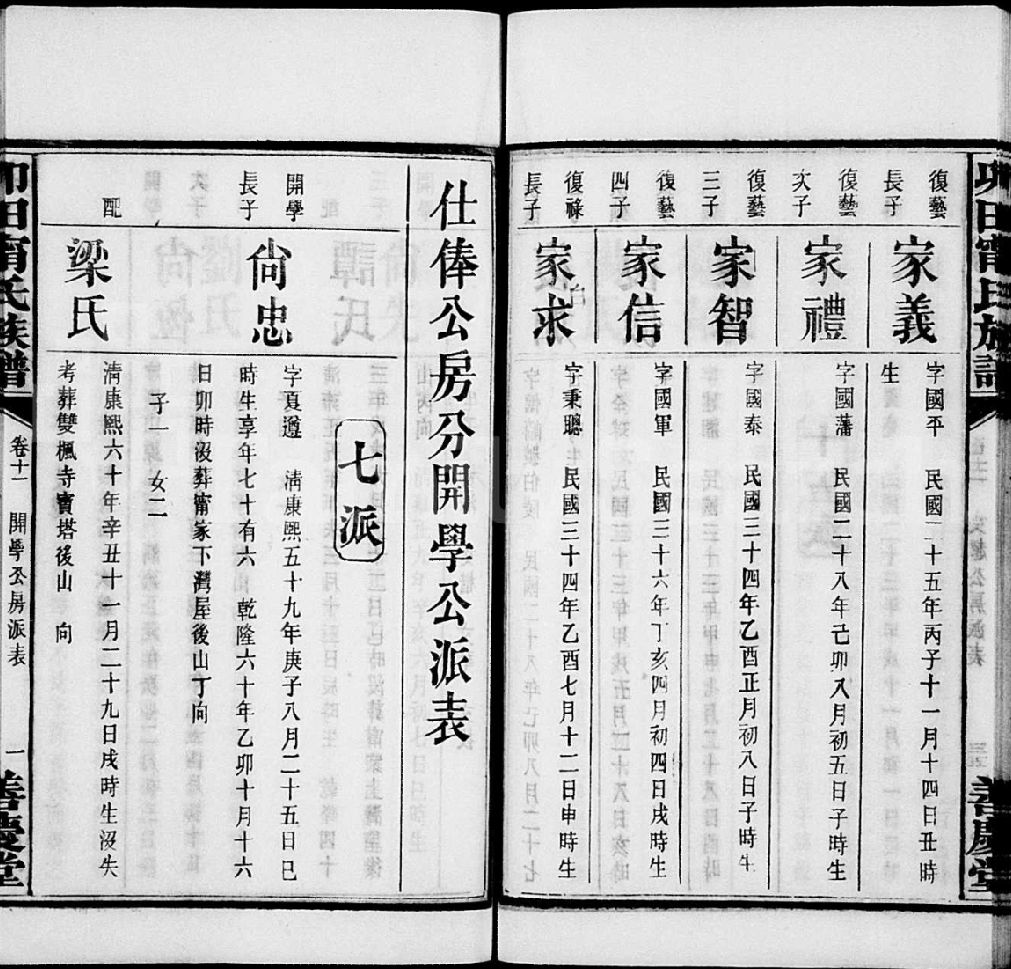 復藝
長子
家義
字國平 民國二十五年丙子十一月十四日丑時
生
復藝
次子
家禮
字國藩 民國二十八年己卯八月初五日子時生
復藝
三子
家智
字國泰 民國三十四年乙酉正月初八日子時生
復藝
四子
家信
字國軍 民國三十六年丁亥四月初四日戌時生
復祿
長子
家求
字秉聰 民國三十四年乙酉七月十二日申時生
善慶堂
仕俸公房分開學公派表
七派
開學
長子
尙忠
字夏遵 清康熙五十九年庚子八月二十五日巳
時生享年七十有六 乾隆六十年乙卯十月十六
日卯時沒葬甯家下灣屋後山丁向
子一 女二
配
梁氏
清康熙六十年辛丑十一月二十九日戌時生沒失
考葬雙楓寺寶塔後山 向
甯氏族譜
卷十一
開學公房派表
一
善慶堂